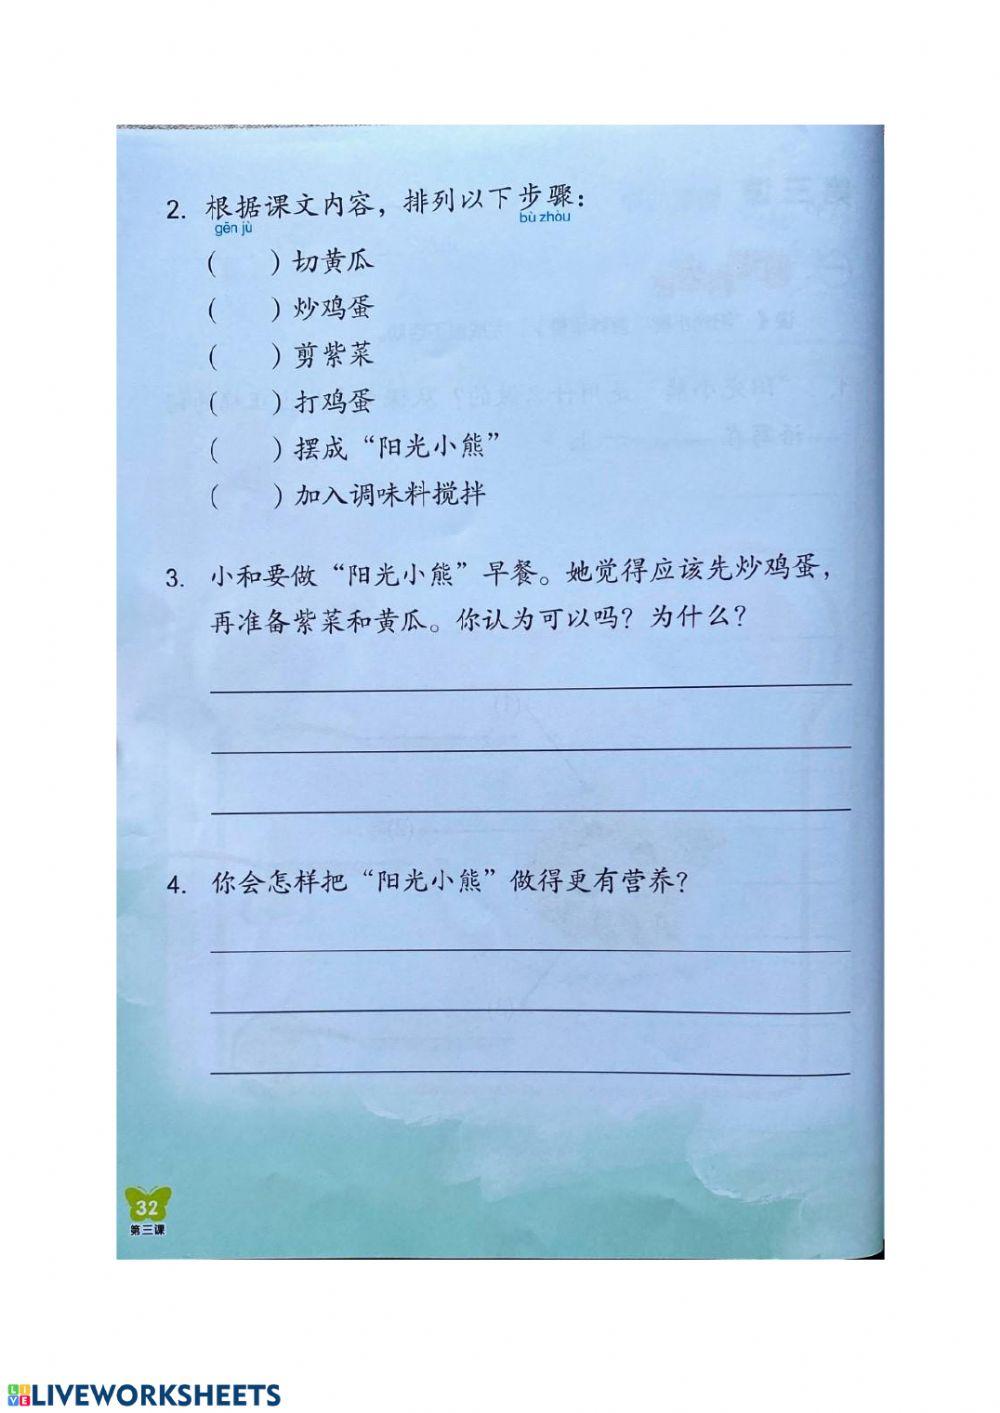 2. 根据课文内容，排列以下步骤：
gēn jù bù zhòu
( ) 切黄瓜
( ) 炒鸡蛋
( ) 剪紫菜
( ) 打鸡蛋
( ) 摆成“阳光小熊”
( ) 加入调味料搅拌
3. 小和要做“阳光小熊”早餐。她觉得应该先炒鸡蛋，
再准备紫菜和黄瓜。你认为可以吗？为什么？
4. 你会怎样把“阳光小熊”做得更有营养？
32
第三课
LIVEWORKSHEETS